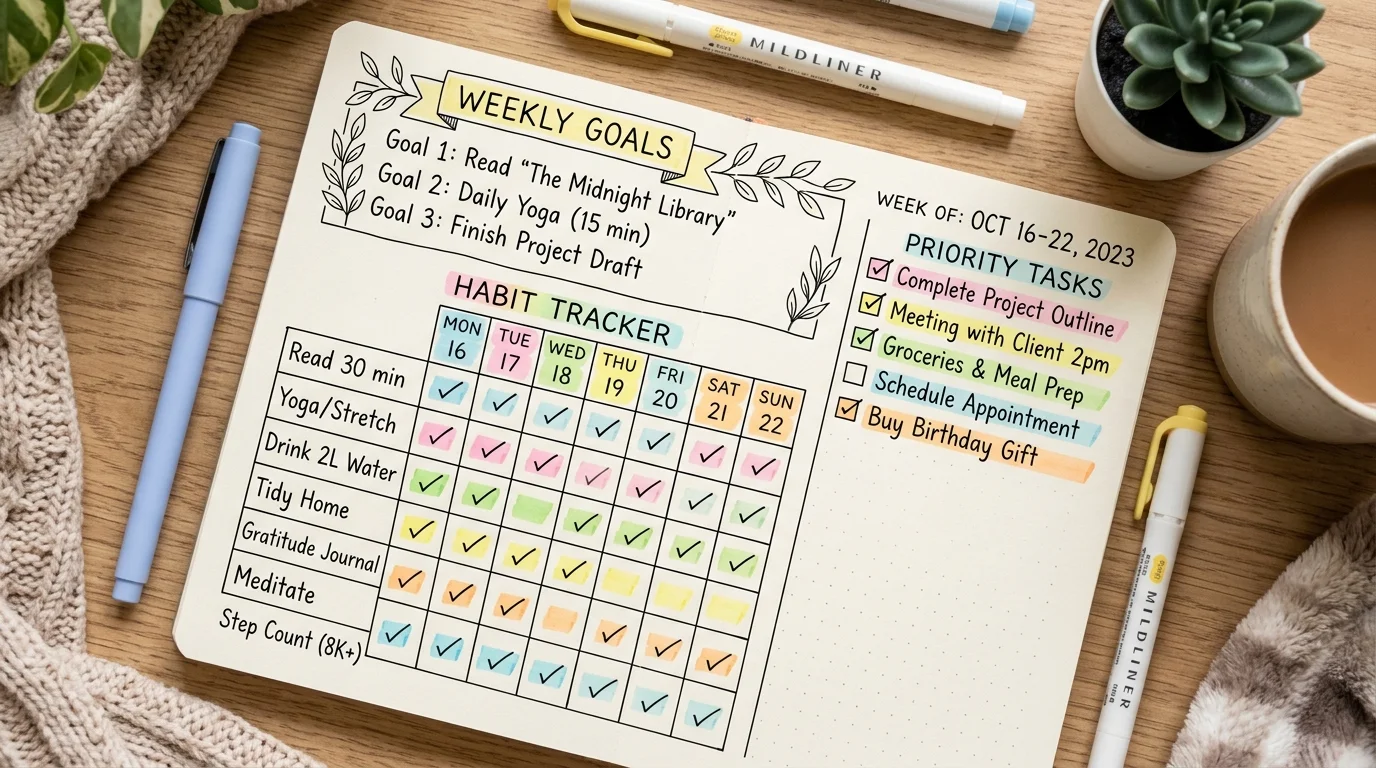 WEEKLY GOALS
Goal 1: Read “The Midnight Library”
Goal 2: Daily Yoga (15 min)
Goal 3: Finish Project Draft
HABIT TRACKER
MON 16
TUE 17
WED 18
THU 19
FRI 20
SAT 21
SUN 22
Read 30 min
Yoga/Stretch
Drink 2L Water
Tidy Home
Gratitude Journal
Meditate
Step Count (8K+)
WEEK OF: OCT 16-22, 2023
PRIORITY TASKS
Complete Project Outline
Meeting with Client 2pm
Groceries & Meal Prep
Schedule Appointment
Buy Birthday Gift
MILDLINER
MILDLINER